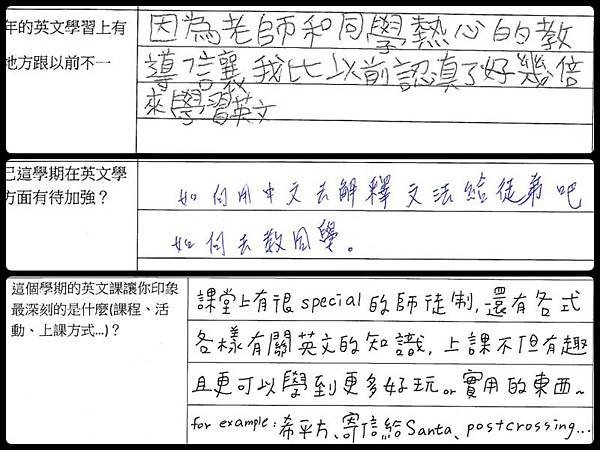 年的英文學習上有
地方跟以前不一
因為老師和同學熱心的教
導，讓我比以前認真了好幾倍
來學習英文
己這學期在英文學
方面有待加強？
如何用中文去解釋文法給徒弟吧
如何去教同學。
這個學期的英文課讓你印象
最深刻的是什麼(課程、活
動、上課方式…)？
課堂上有很special的師徒制,還有各式
各樣有關英文的知識,上課不但有趣
且更可以學到更多好玩or實用的東西~
for example:希平方、寄信給Santa、postcrossing...